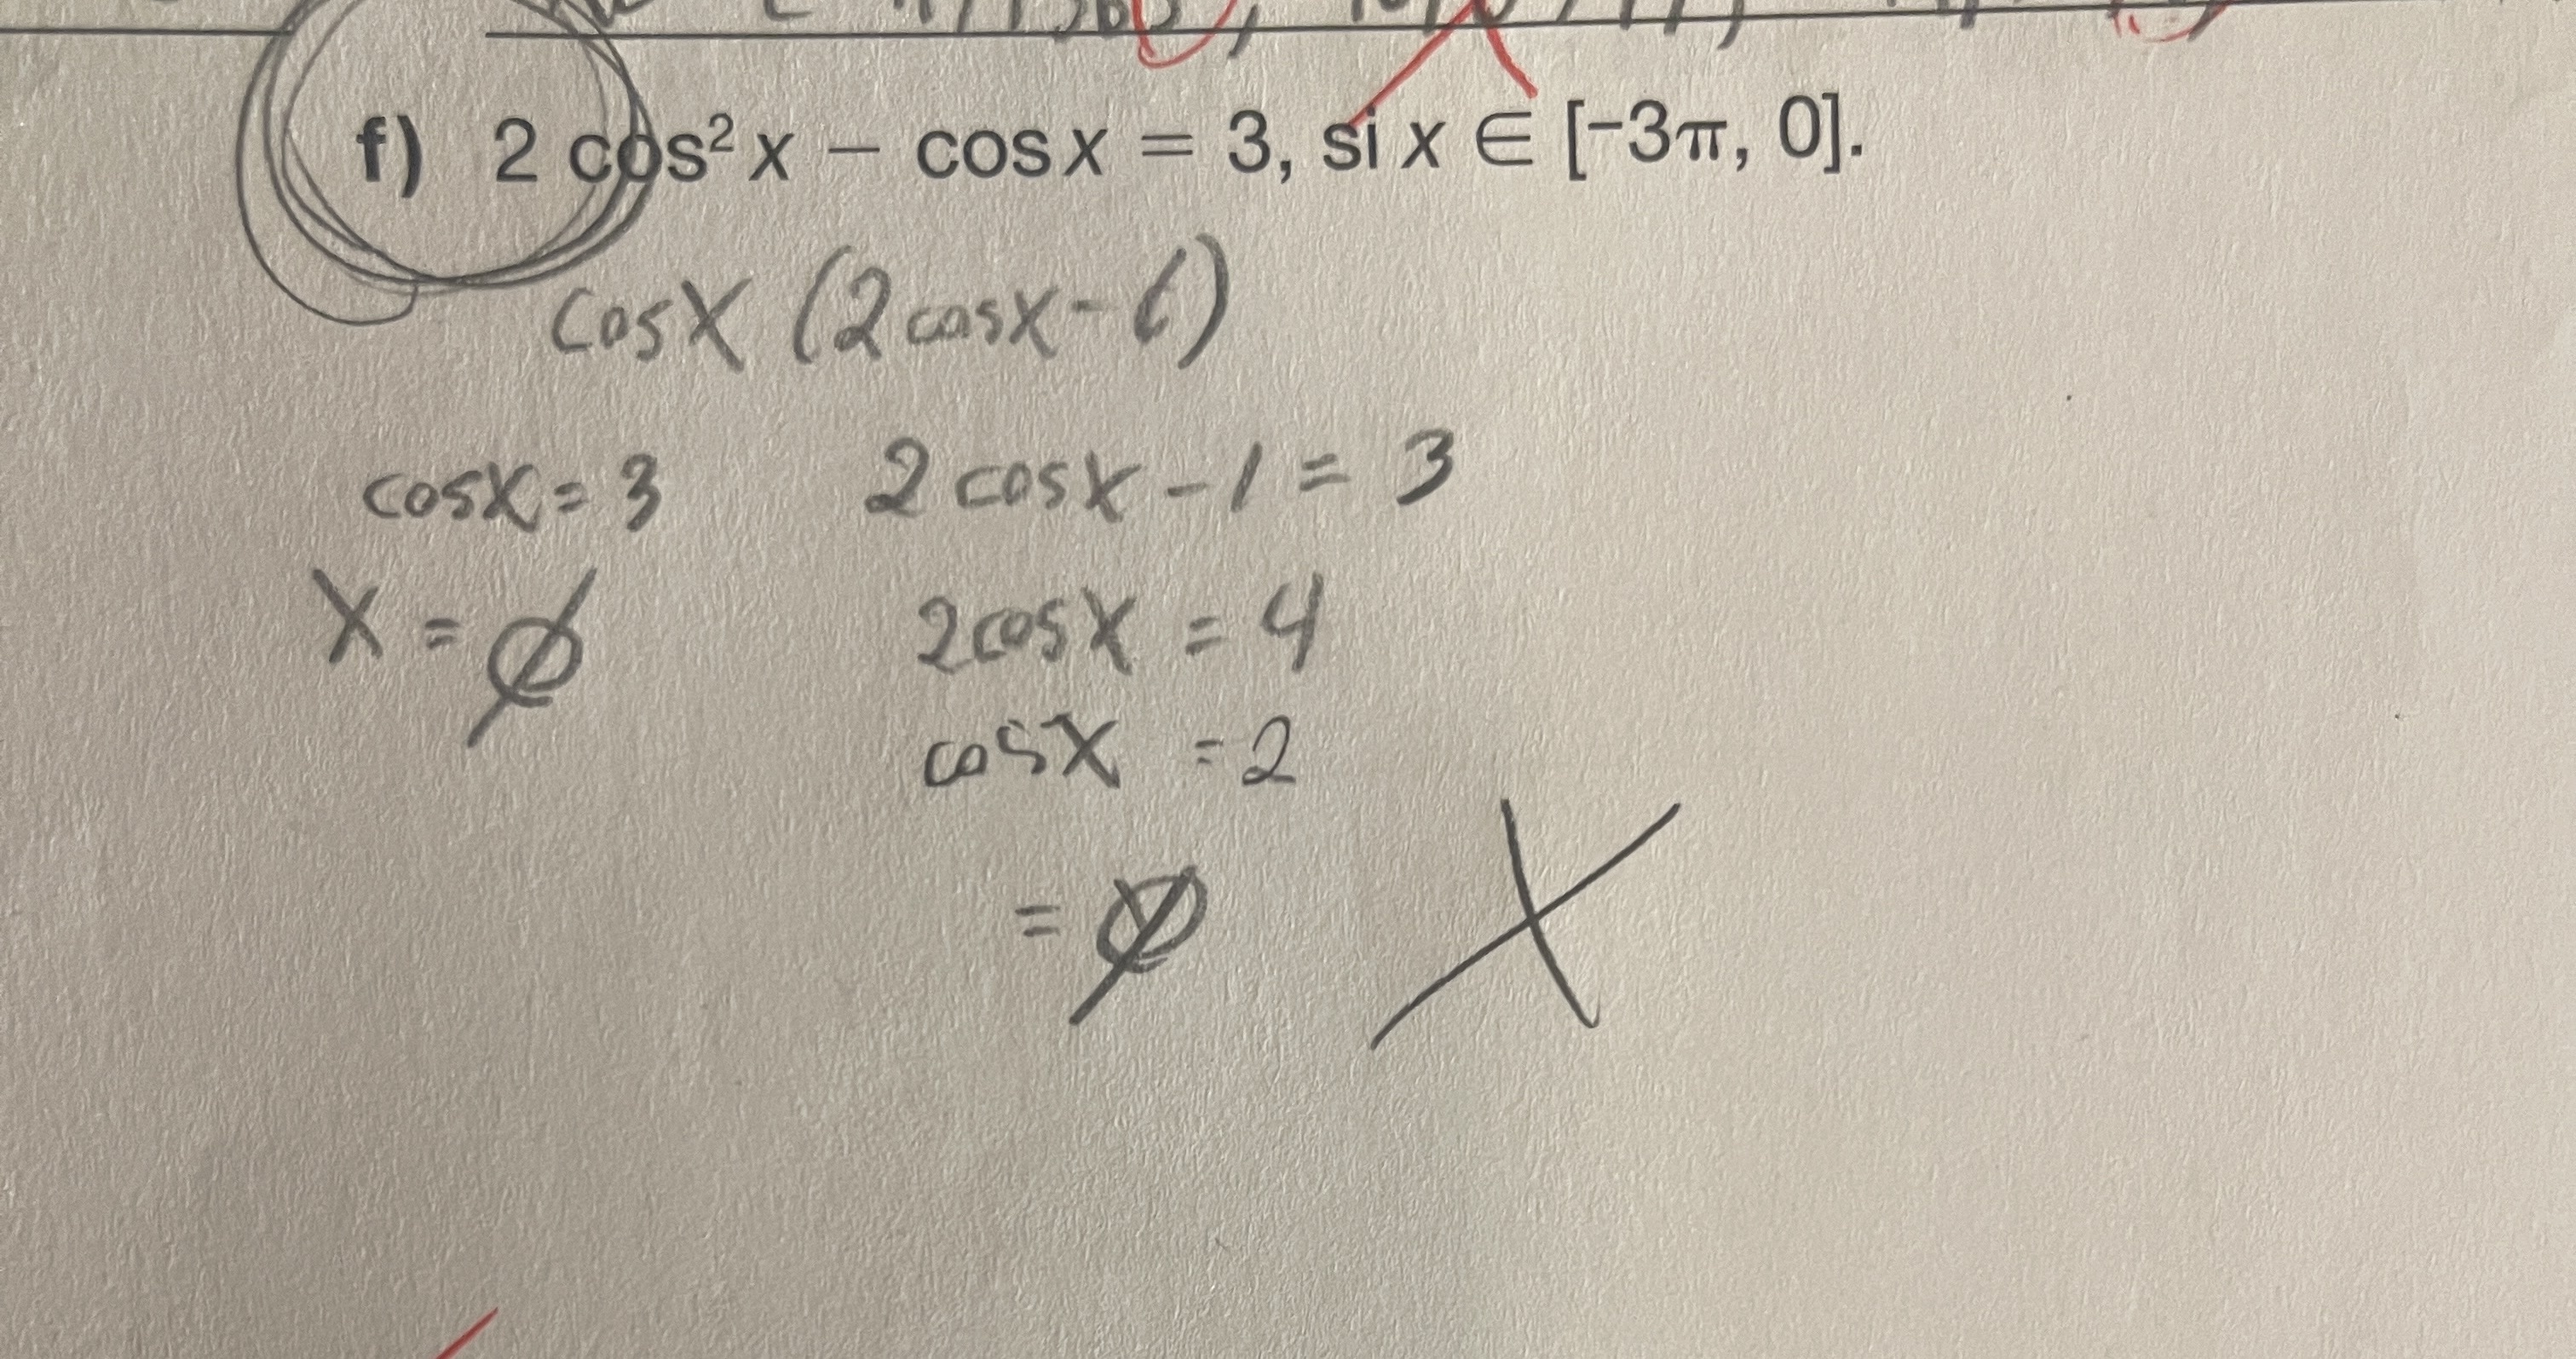 f) 2 cos² x − cos x = 3, si x ∈ [⁻3π, 0].
cosx (2cosx-1)
cosx = 3 2cosx - 1 = 3
x = ∅ 2cosx = 4
cosx = 2
= ∅